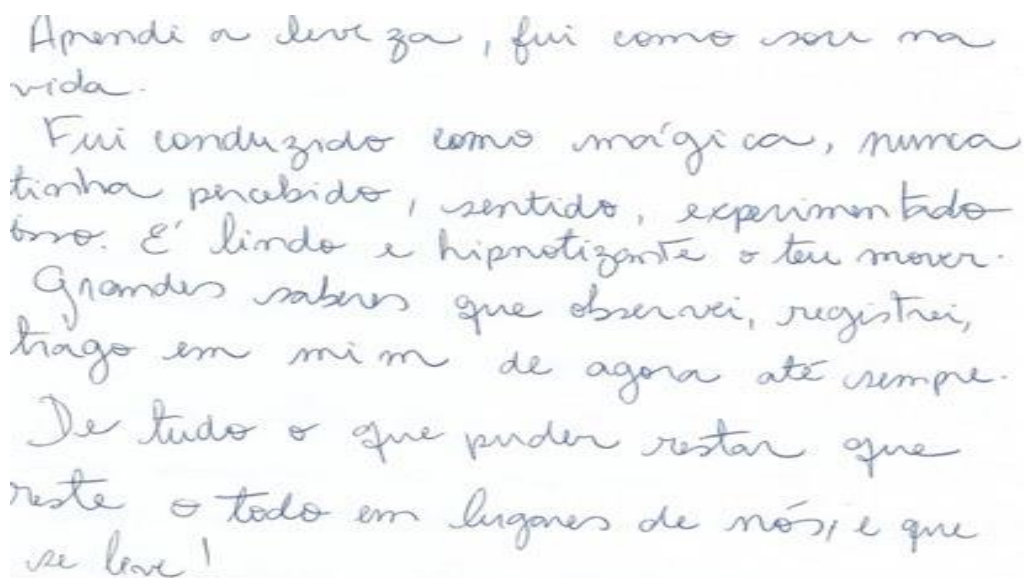 Aprendi a leveza, fui como sou na
vida.
Fui conduzido como mágica, nunca
tinha percebido, sentido, experimentado
isso. É lindo e hipnotizante o teu mover.
Grandes saberes que observei, registrei,
trago em mim de agora até sempre.
De tudo o que puder restar que
reste o todo em lugares de nós, e que
se leve!